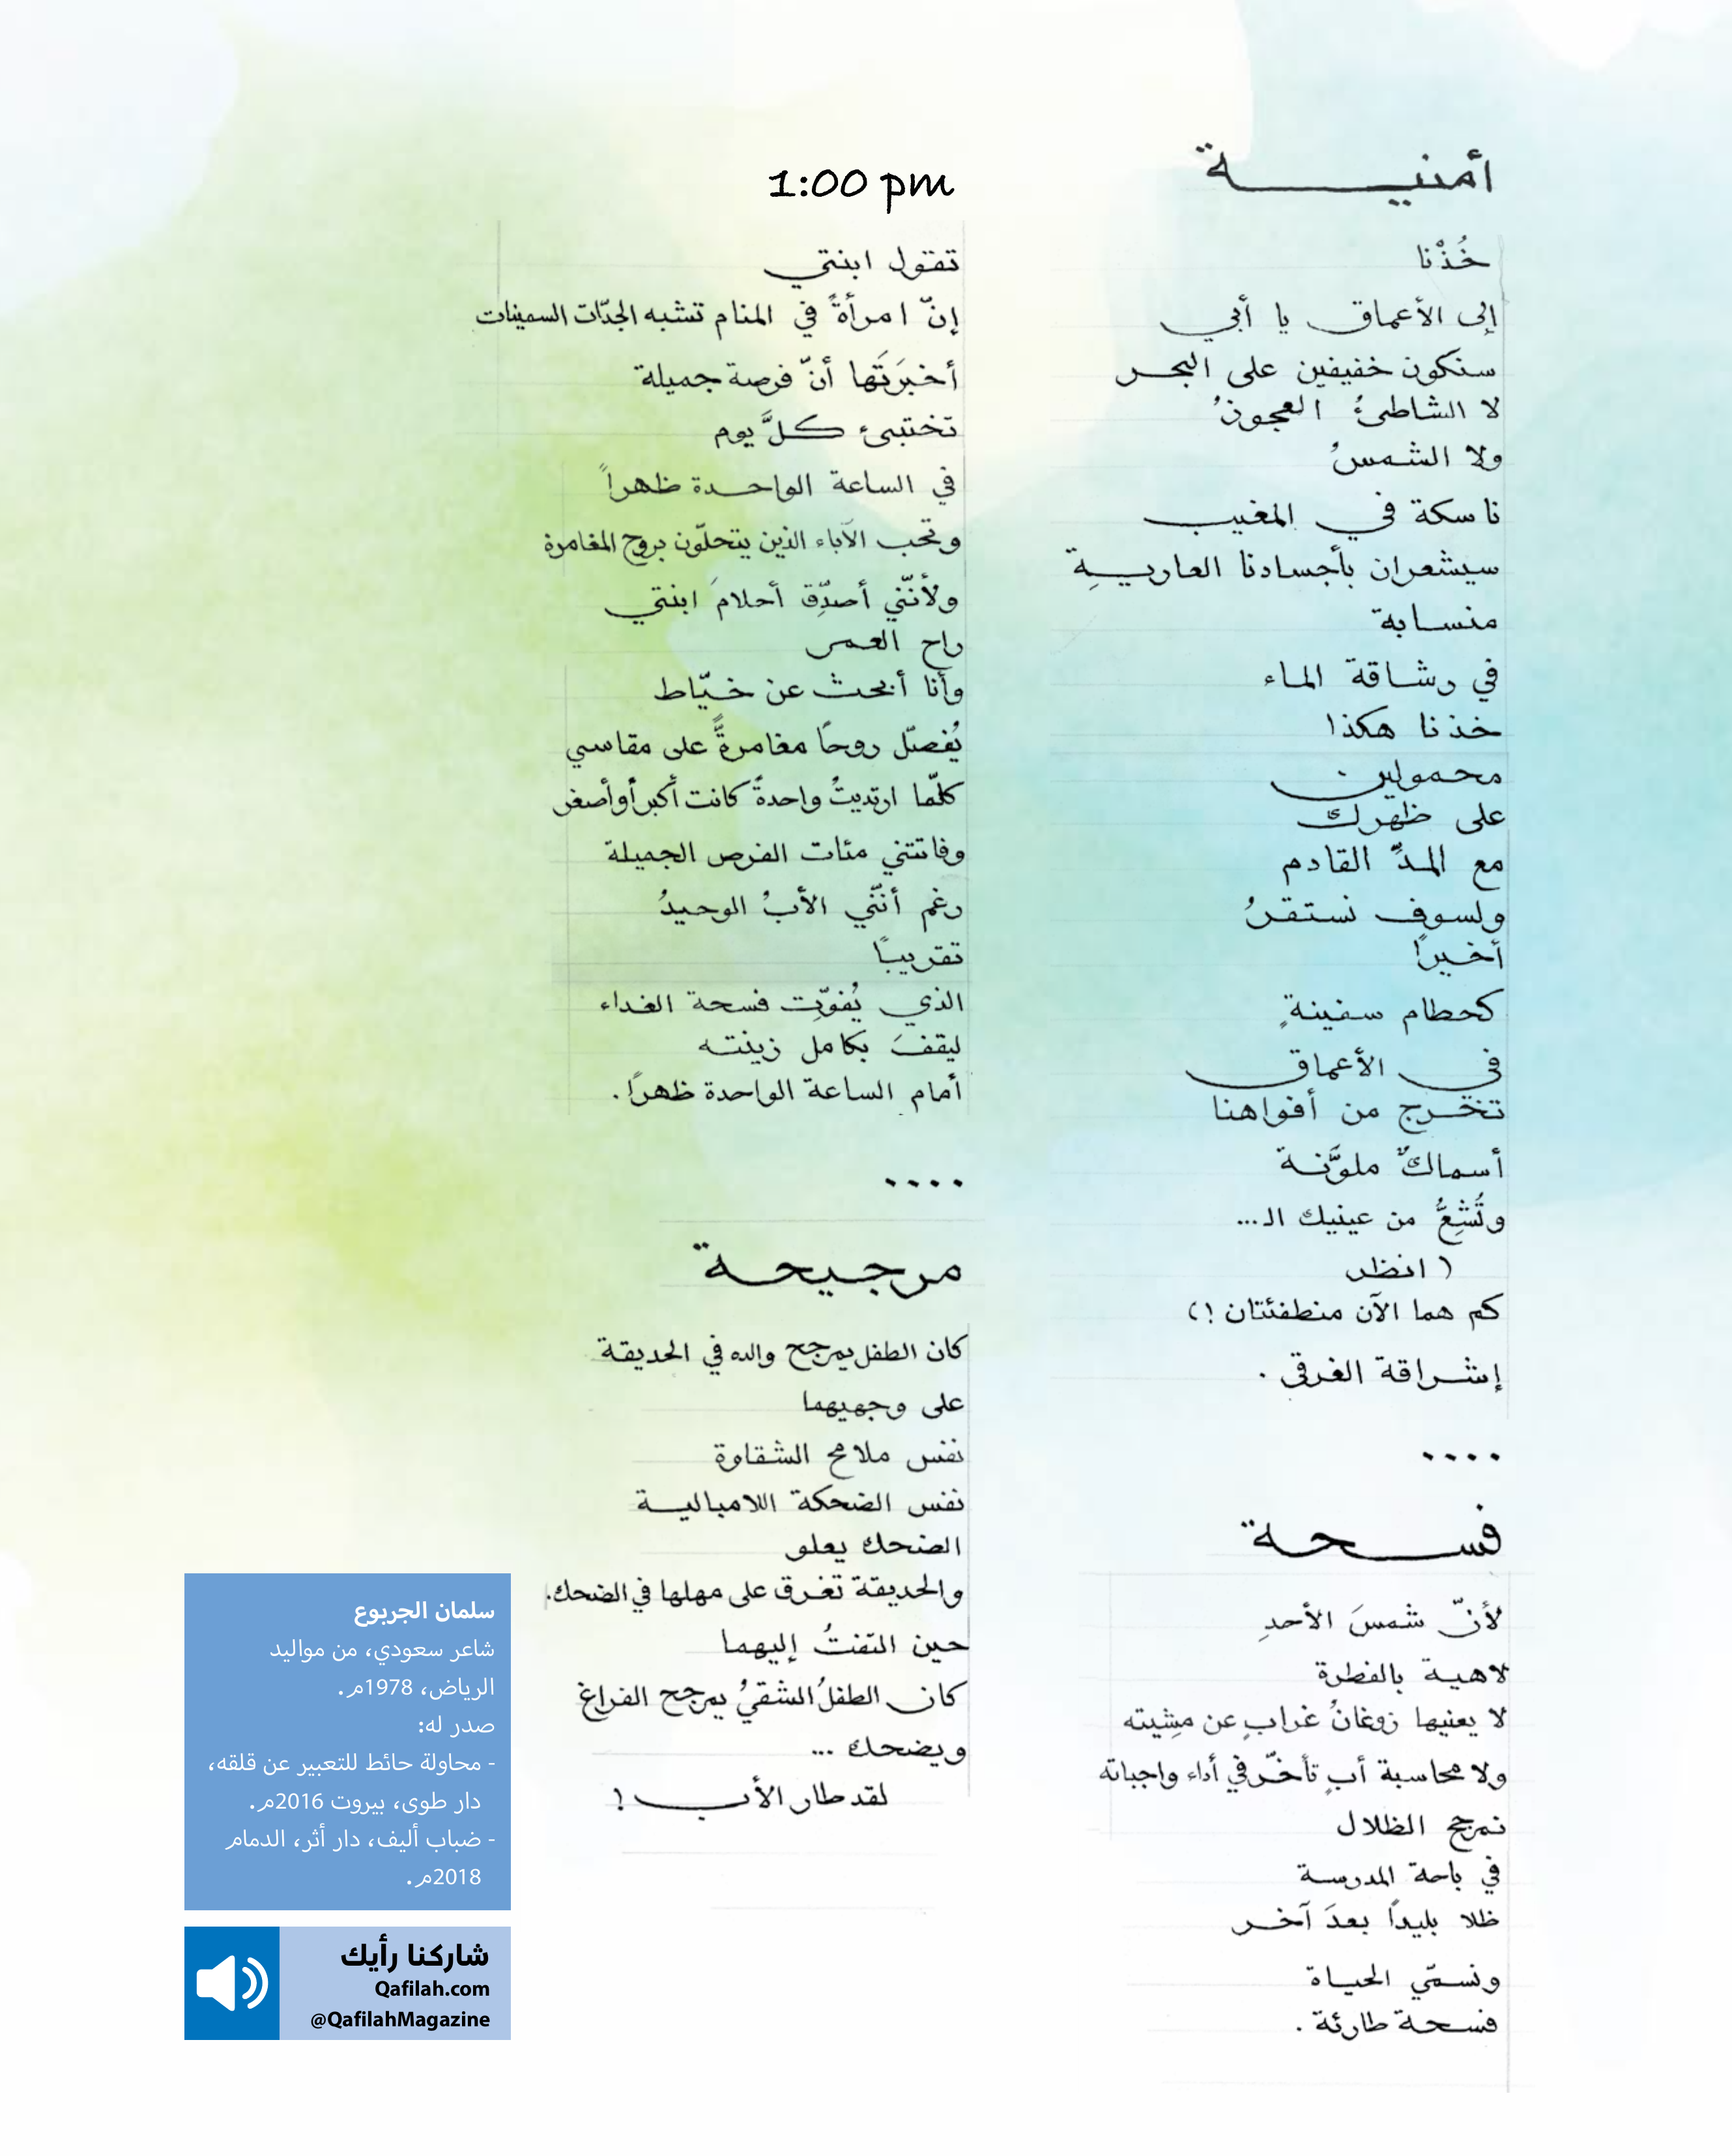 أمنيــــة
خُذْنا
إلى الأعماق يا أبي
سنكون خفيفين على البحر
لا الشاطئُ العجونُ
ولا الشمسُ
ناسكة في المغيب
سيشعران بأجسادنا العاريةِ
منسابة
في رشاقة الماء
خذنا هكذا
محمولين
على ظهرك
مع المدِّ القادم
ولسوف نستقرُ
أخيراً
كحطام سفينةٍ
في الأعماق
تخرج من أفواهنا
أسماكٌ ملوَّنة
وتُشِعُّ من عينيك الـ...
( انظر
كم هما الآن منطفئتان !)
إشراقة الغرقى .
....
فسحة
لأنّ شمسَ الأحدِ
لاهية بالفطرة
لا يعنيها زوغانُ غرابٍ عن مشِيته
ولا محاسبة أبٍ تأخّر في أداء واجباته
نمرجح الظلال
في باحة المدرسة
ظلا بليداً بعدَ آخر
ونسمّي الحياة
فسحة طارئة .
1:00 pm
تقول ابنتي
إنّ امرأةً في المنام تشبه الجدّات السمينات
أخبَرَتَها أنّ فرصة جميلة
تختبئ كلَّ يوم
في الساعة الواحدة ظهراً
وتحب الآباء الذين يتحلّون بروح المغامرة
ولأنّني أصدّق أحلامَ ابنتي
راح العمر
وأنا أبحث عن خيّاط
يُفصّل روحاً مغامرةً على مقاسي
كلّما ارتديتُ واحدةً كانت أكبر أو أصغر
وفاتتني مئات الفرص الجميلة
رغم أنّني الأبُ الوحيدُ
تقريباً
الذي يُفوّت فسحة الغداء
ليقفَ بكامل زينته
أمام الساعة الواحدة ظهراً .
....
مرجيحة
كان الطفل يمرجح والده في الحديقة
على وجهيهما
نفس ملامح الشقاوة
نفس الضحكة اللامبالية
الضحك يعلو
والحديقة تغرق على مهلها في الضحك.
حين التفتُ إليهما
كان الطفلُ الشقيُ يمرجح الفراغ
ويضحك ...
لقد طار الأب !
سلمان الجربوع
شاعر سعودي، من مواليد
الرياض، 1978م.
صدر له:
- محاولة حائط للتعبير عن قلقه،
دار طوى، بيروت 2016م.
- ضباب أليف، دار أثر، الدمام
2018م.
شاركنا رأيك
Qafilah.com
@QafilahMagazine